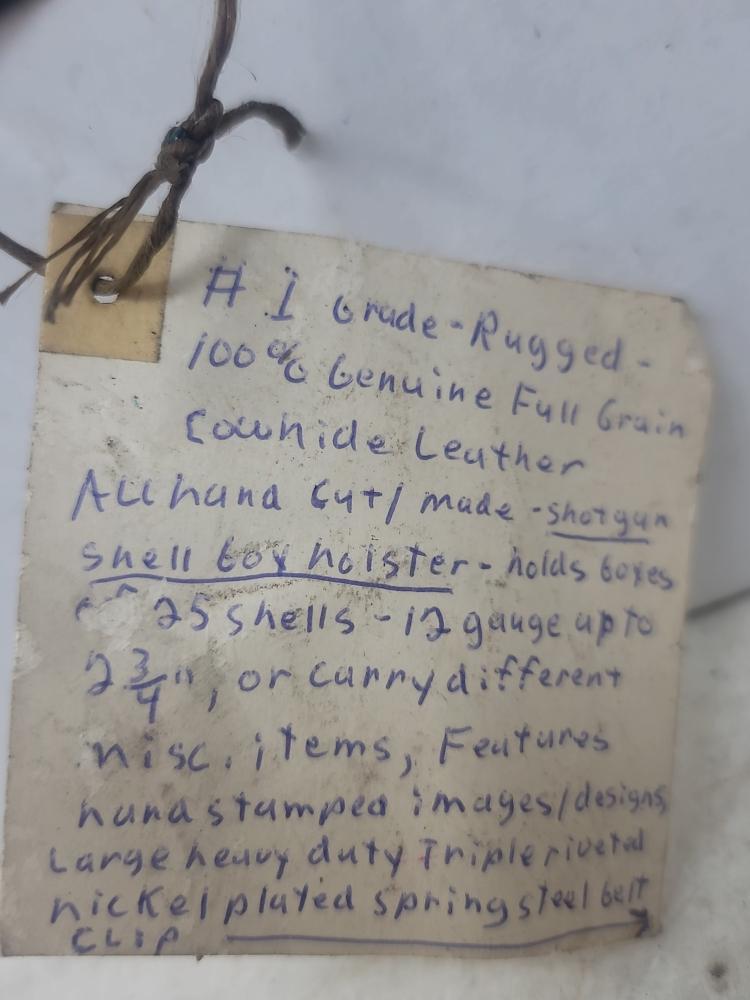 # 1 Grade-Rugged-
100% Genuine Full Grain
Cowhide Leather
All hand Cut/made-shotgun
shell box holster-holds boxes
25 shells-12 gauge up to
2 3/4", or carry different
misc. items, Features
hand stamped images/designs,
Large heavy duty Triple riveted
nickel plated spring steel belt
CLIP